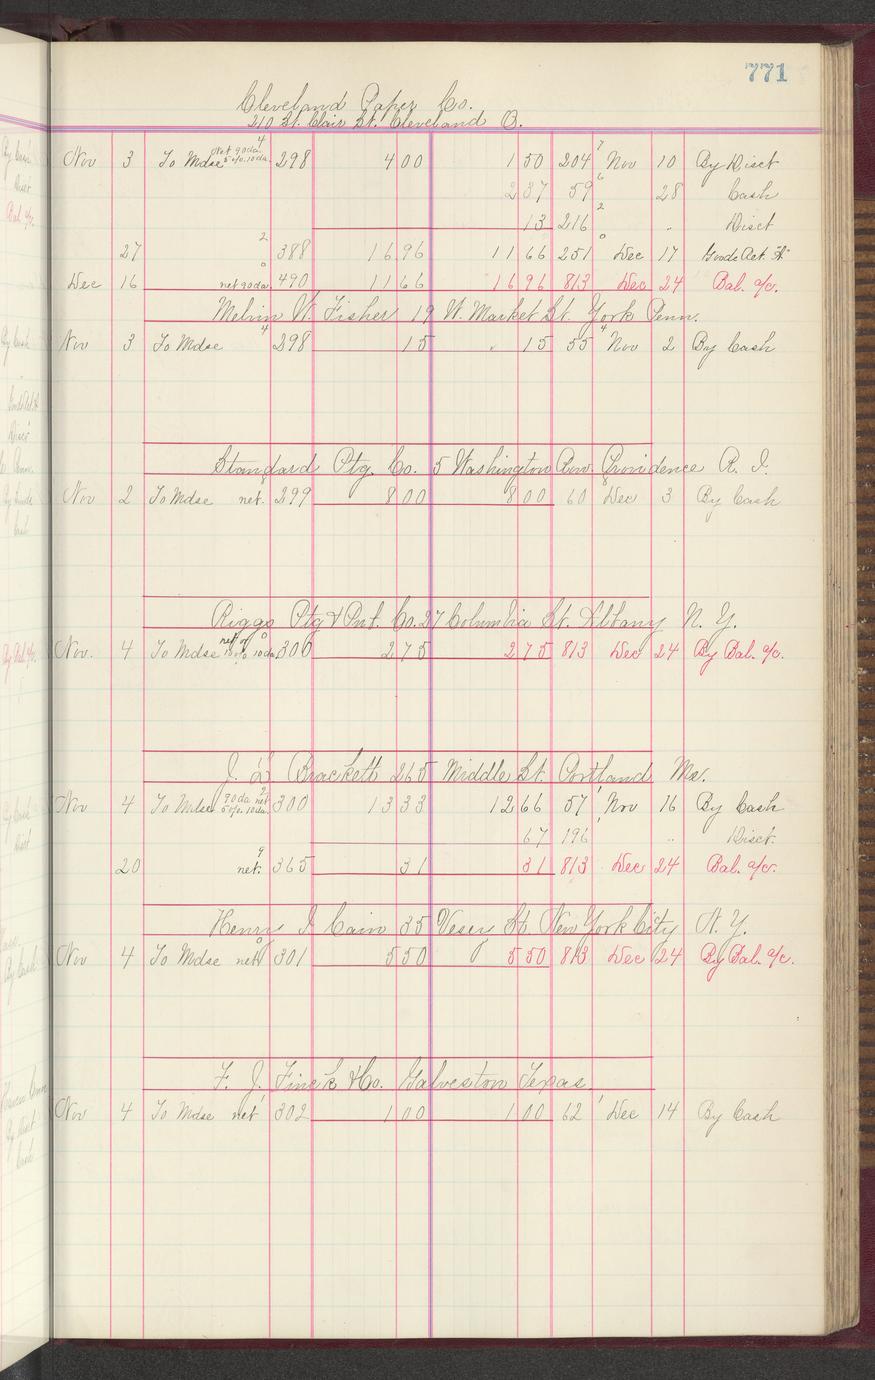 771
Cleveland Paper Co.
210 St. Clair St. Cleveland O.
Nov 3 To Mdse net 90 da. 5% 10 da. 4 298 4 00 1 50 204 7 Nov 10 By Disct
2 37 59 6 28 Cash
13 216 2 " Disct
27 2 388 16 96 11 66 251 0 Dec 17 Goods Ret. "A"
Dec 16 net 90 da. 0 490 11 66 16 96 813 Dec 24 Bal. a/c.
Melvin W. Fisher 19 W. Market St. York Penn.
Nov 3 To Mdse 4 298 15 15 55 4 Nov 2 By Cash
Standard Ptg. Co. 5 Washington Row. Providence R. I.
Nov 2 To Mdse net. 299 8 00 8 00 60 8 Dec 3 By Cash
Riggs Ptg & Pub. Co. 27 Columbia St. Albany N. Y.
Nov. 4 To Mdse net or 10% 10 da. 0 300 2 75 2 75 813 Dec 24 By Bal. a/c.
J. L. Brackett 265 Middle St. Portland Me.
Nov 4 To Mdse 90 da net 5% 10 da. 2 300 13 33 12 66 57 1 Nov 16 By Cash
67 196 " Disct.
20 net. 9 365 31 31 813 Dec 24 Bal. a/c.
Henry I Cain 35 Vesey St. New York City N. Y.
Nov 4 To Mdse net 0 301 5 50 5 50 813 Dec 24 By Bal. a/c.
F. J. Finck & Co. Galveston Texas.
Nov 4 To Mdse net 1 302 1 00 1 00 62 1 Dec 14 By Cash